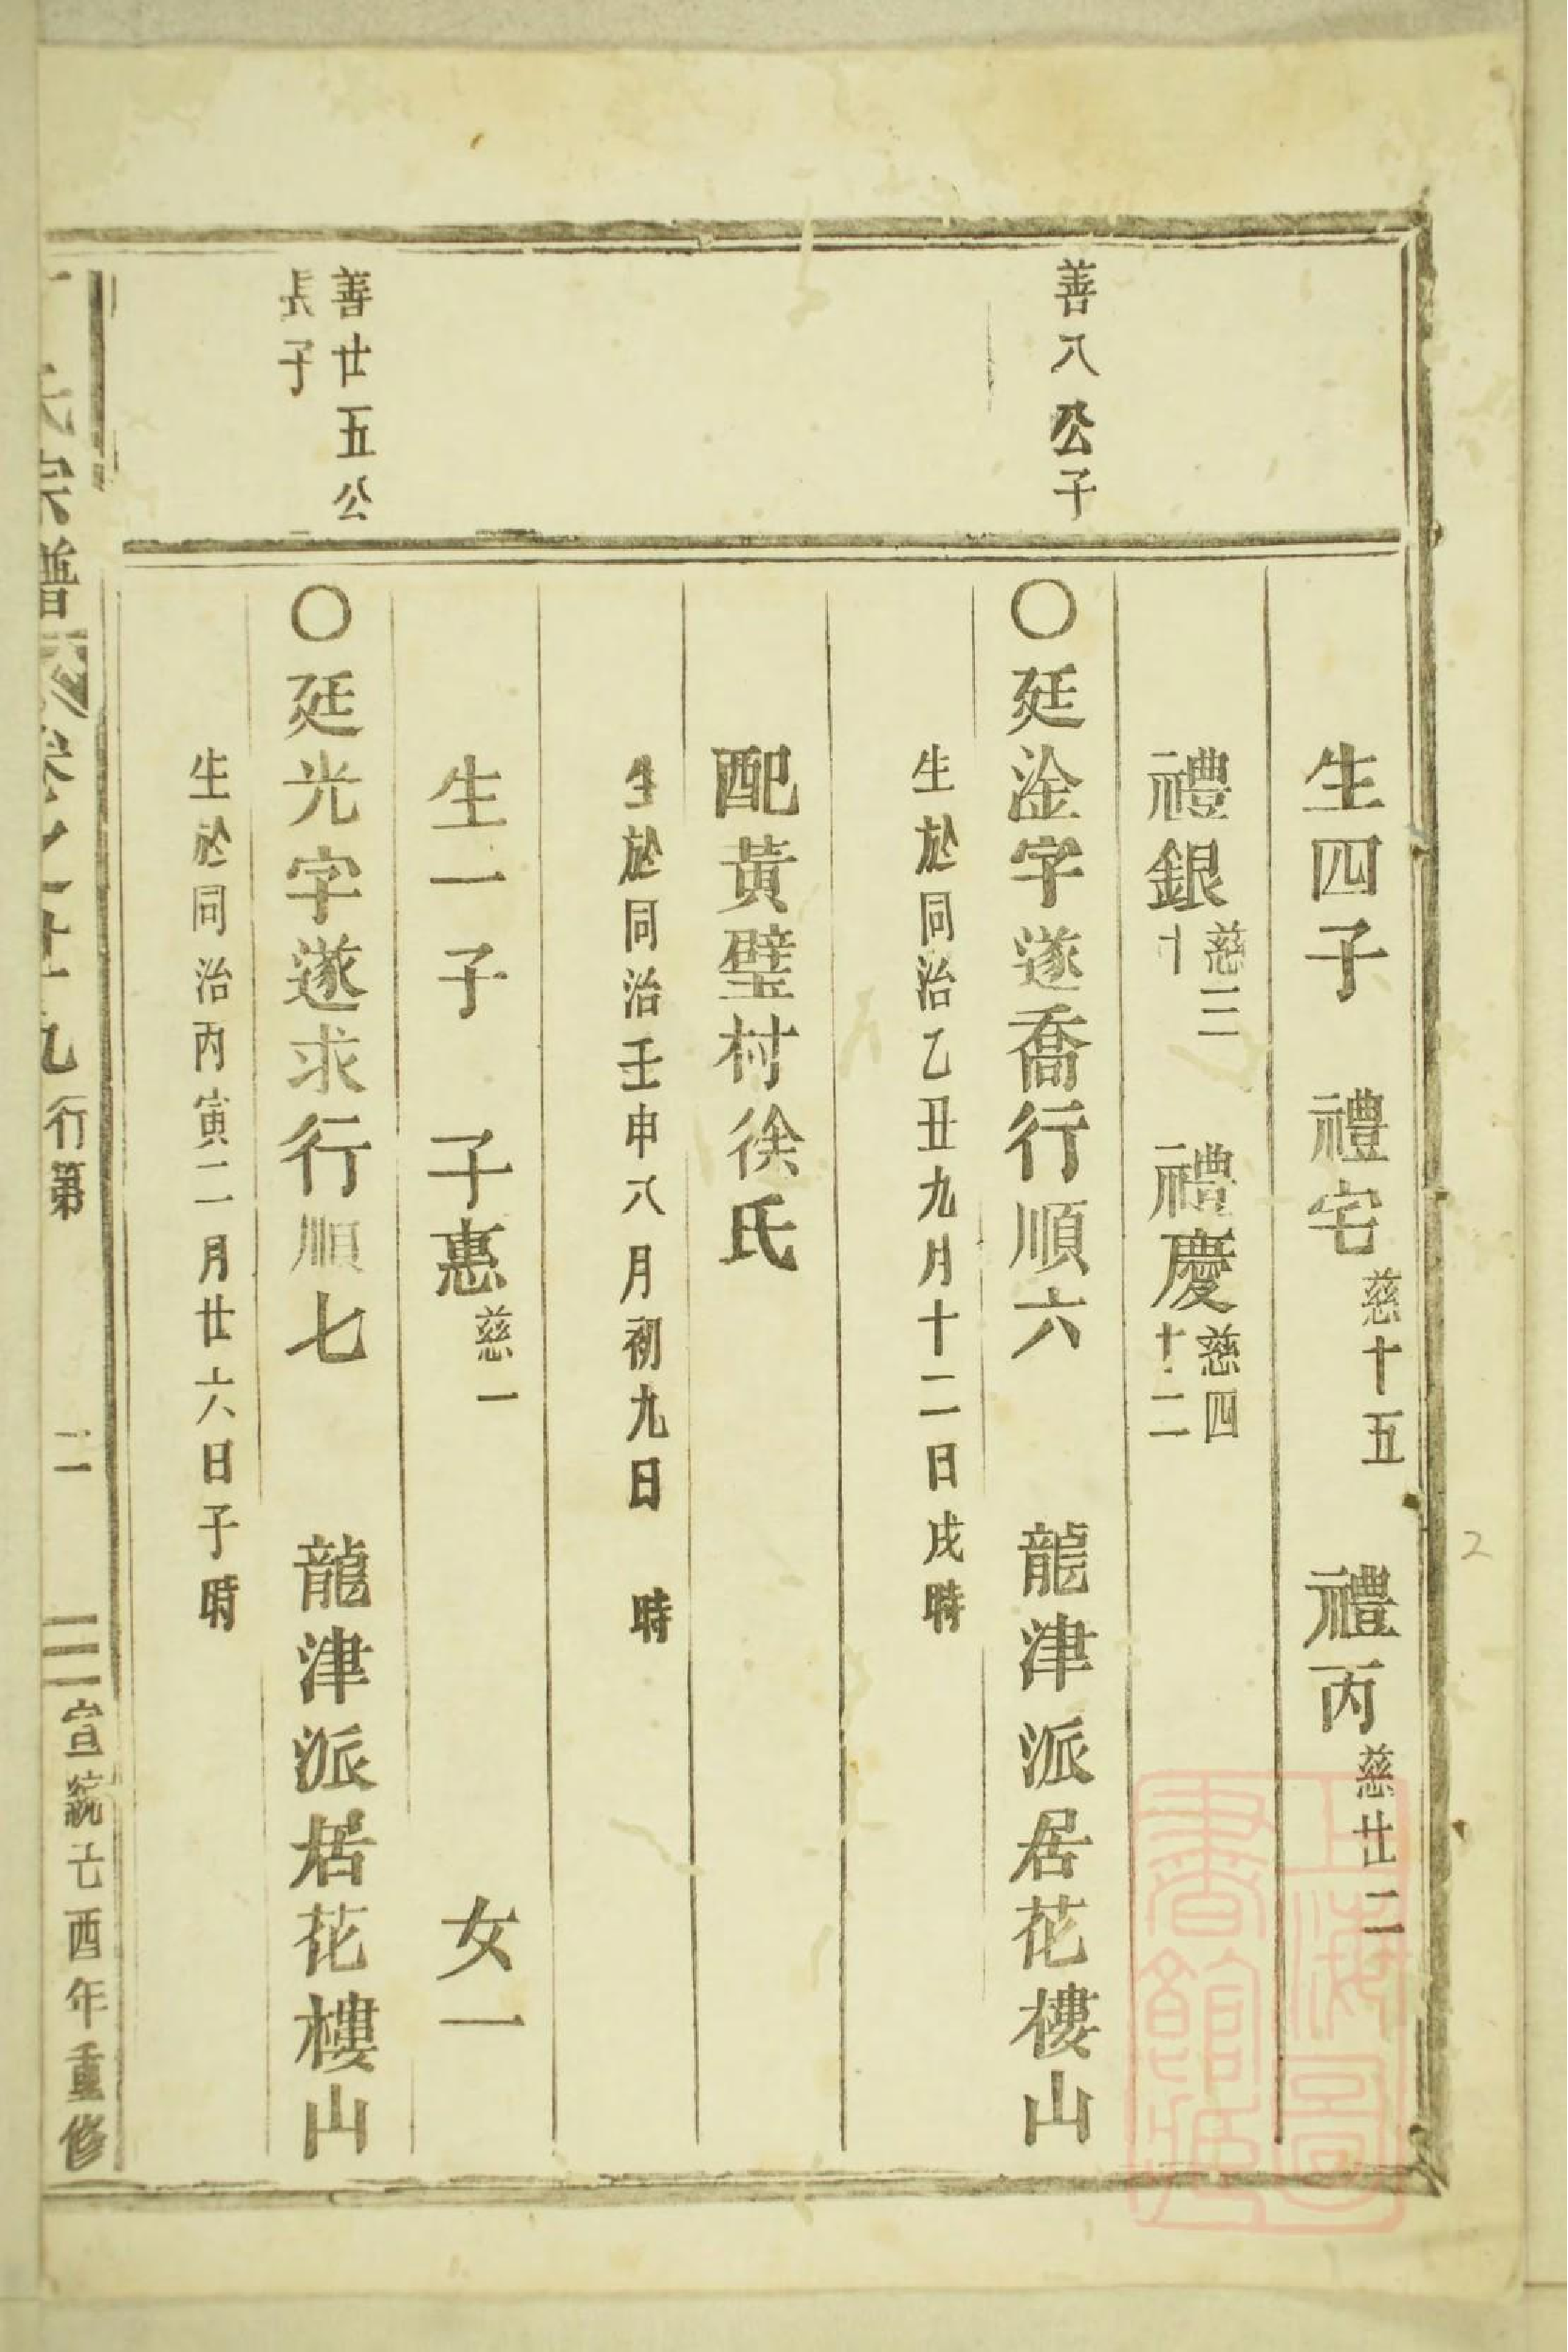 生四子　禮宅慈十五　禮丙慈廿二
禮銀慈三十　禮慶慈四十二
善八公子
〇廷淦字遂喬行順六　龍津派居花樓山
生於同治乙丑九月十二日戌時
配黃璧村徐氏
生於同治壬申八月初九日　時
生一子　子惠慈一　女一
善廿五公
長子
〇廷光字遂求行順七　龍津派居花樓山
生於同治丙寅二月廿六日子時
氏宗譜卷之廿九行第　二　宣統己酉年重修
上海圖
書館藏
2